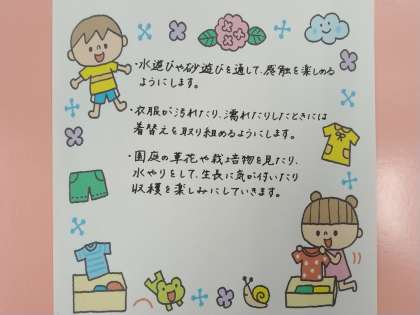 ・水遊びや砂遊びを通して、感触を楽しめる
ようにします。
・衣服が汚れたり、濡れたりしたときには
着替えを取り組めるようにします。
・園庭の草花や栽培物を見たり、
水やりをして、生長に気が付いたり
収穫を楽しみにしていきます。